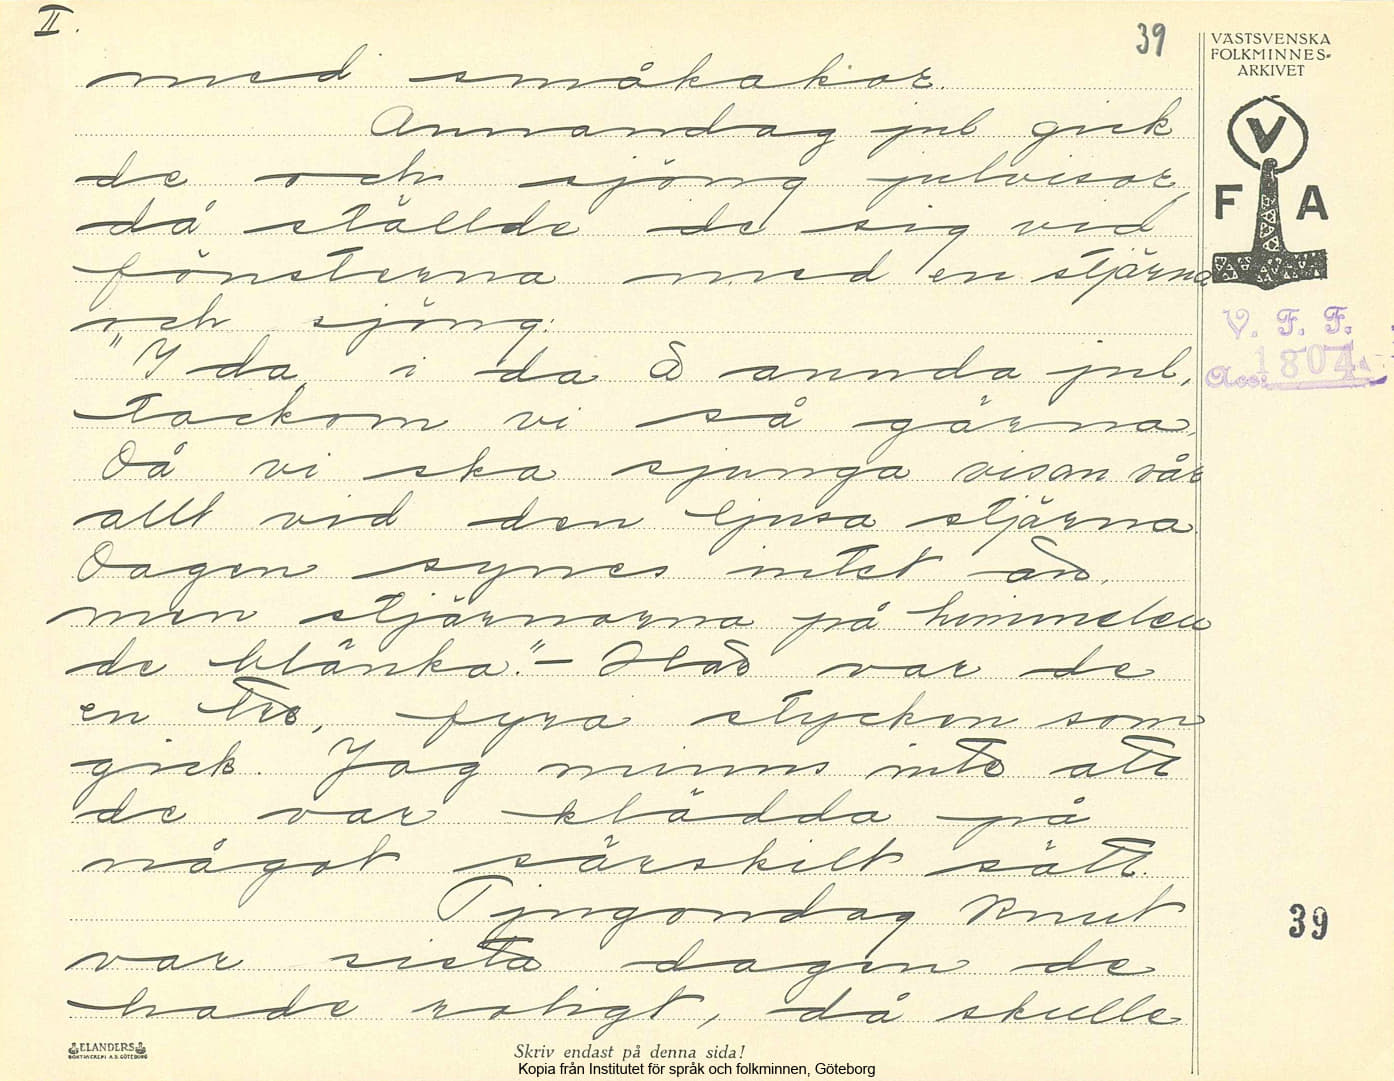 II.
39
VÄSTSVENSKA
FOLKMINNES-
ARKIVET
V
F A
V. F. F.
Acc: 1804
med småkakor.
Annandag jul gick
de och sjöng julvisor,
då ställde de sig vid
fönsterna med en stjärna
och sjöng:
"I da, i da å annda jul,
tackom vi så gärna,
Då vi ska sjunga visan vår
allt vid den ljusa stjärna.
Dagen synes intet än,
men stjärnorna på himmelen
de blänka." – Här var de
en tre, fyra stycken som
gick. Jag minns inte att
de var klädda på
något särskilt sätt.
Tjugondag Knut
var sista dagen de
hade roligt, då skulle
39
ELANDERS
BOKTRYCKERI A.B. GÖTEBORG
Skriv endast på denna sida!
Kopia från Institutet för språk och folkminnen, Göteborg